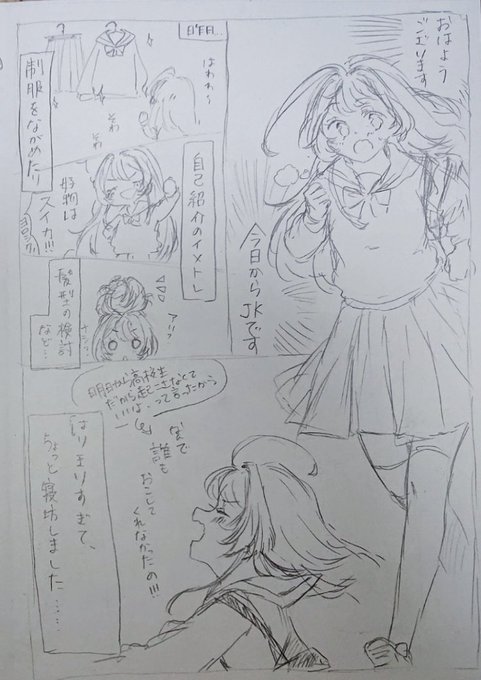 おはよう
ございます
今日から
JKです
昨日…
はわわ〜
制服をながめたり
そわ
そわ
自己紹介のイメトレ
好物は
スイカ!!!
髪型の検討
など…
アリ?
明日から高校生
だから起こさなくて
いいよ、って言ったから
なんで
誰も
おこして
くれなかったの!!!
はりきりすぎて、
ちょっと寝坊しました……